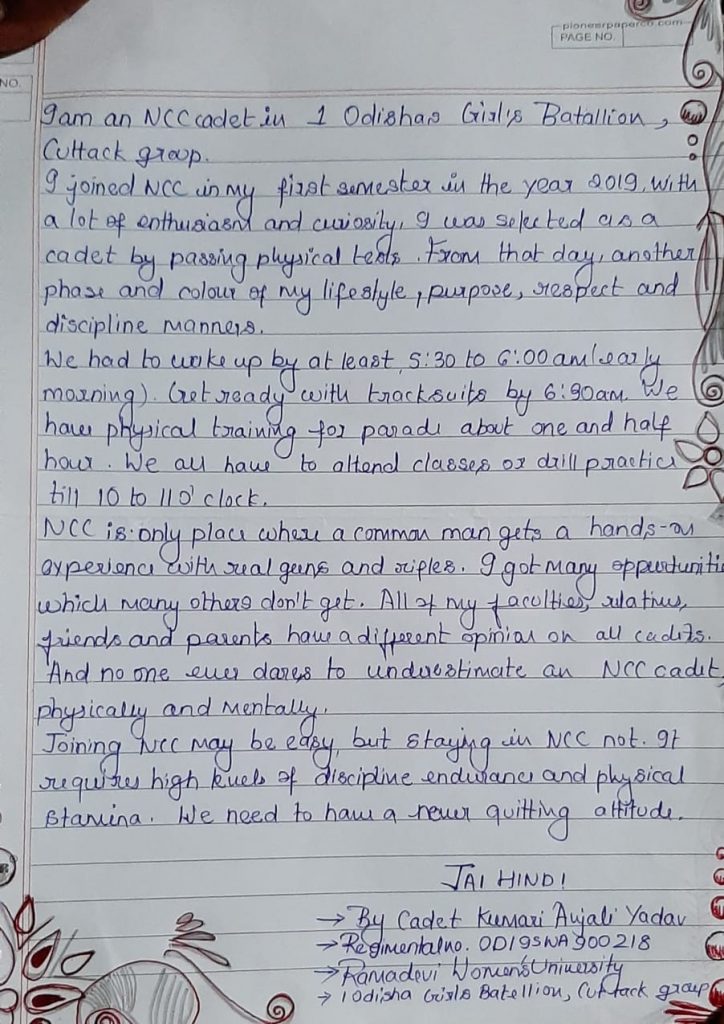 pioneerpaperco.com
PAGE NO.
NO.
I am an NCC cadet in 1 Odishas Girl's Batallion,
Cuttack group.
I joined NCC in my first semester in the year 2019, with
a lot of enthusiasm and curiosity, I was selected as a
cadet by passing physical tests. From that day, another
phase and colour of my lifestyle, purpose, respect and
discipline manners.
We had to woke up by at least 5:30 to 6:00 am (early
morning). Get ready with tracksuits by 6:30am. We
have physical training for parade about one and half
hour. We all have to attend classes or drill practice
till 10 to 11 O' clock.
NCC is only place where a common man gets a hands-on
experience with real guns and rifles. I got many opportuniti
which many others don't get. All of my faculties, relatives,
friends and parents have a different opinion on all cadets.
And no one ever dares to underestimate an NCC cadet,
physically and mentally.
Joining NCC may be easy, but staying in NCC not. It
requires high levels of discipline endurance and physical
stamina. We need to have a never quitting attitude.
JAI HIND!
→ By Cadet Kumari Anjali Yadav
→ Regimental no. OD19SWA300218
→ Ramadevi Women's University
→ 1 Odisha Girls Batellion, Cuttack group